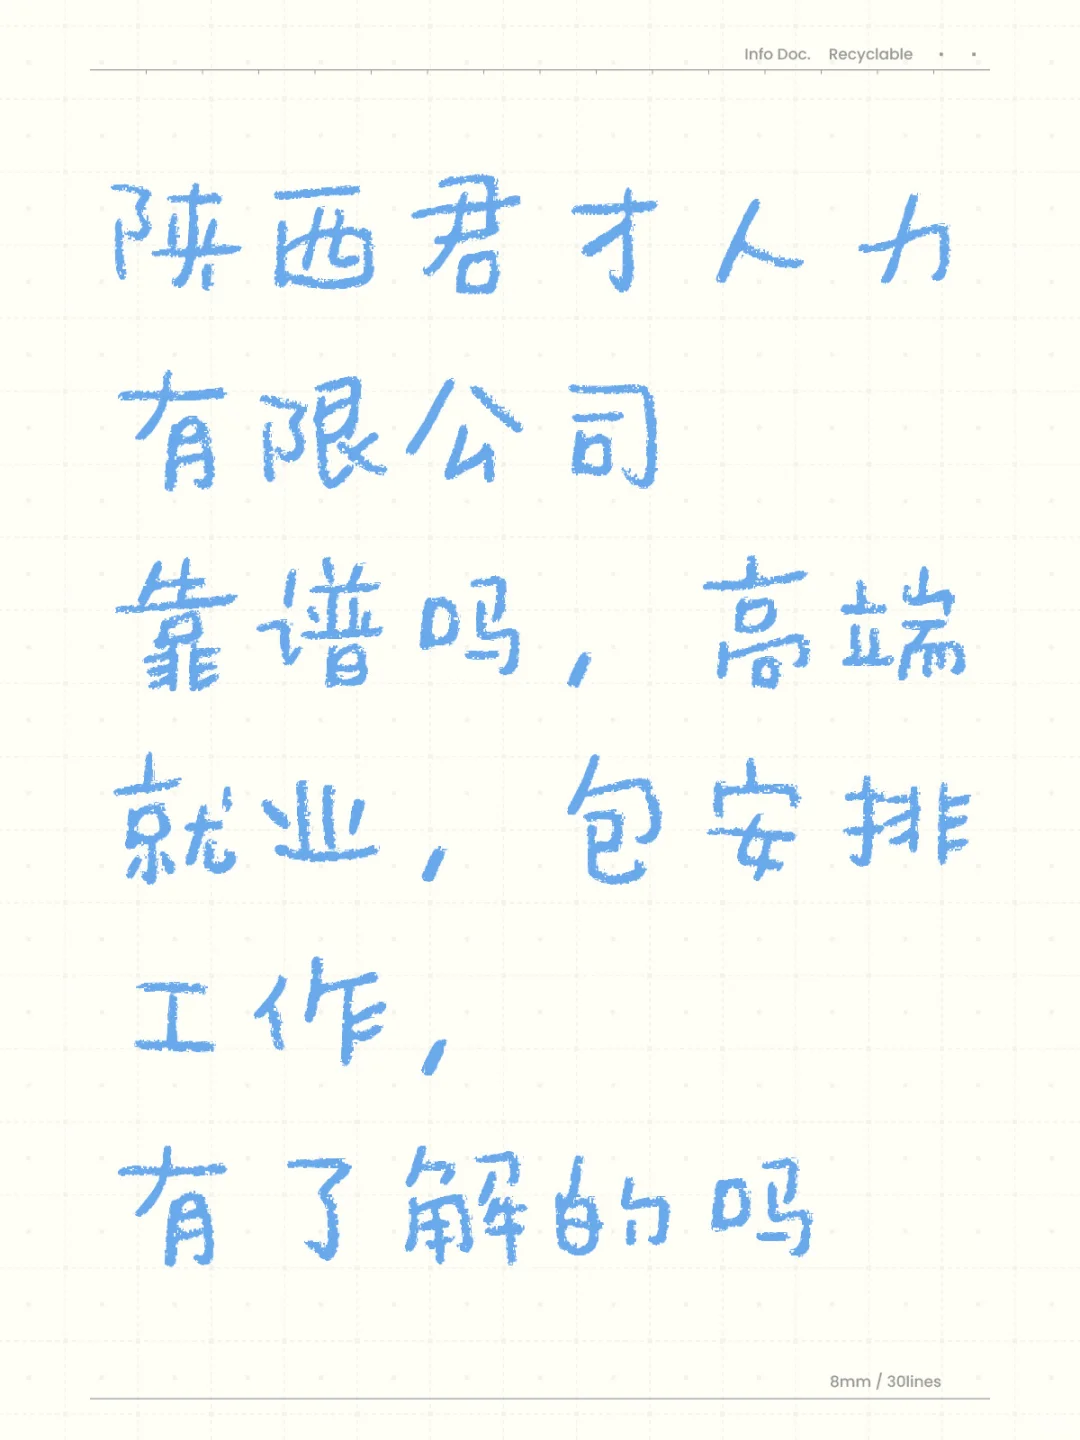 Info Doc. Recyclable
陕西君才人力
有限公司
靠谱吗，高端
就业，包安排
工作，
有了解的吗
8mm / 30lines